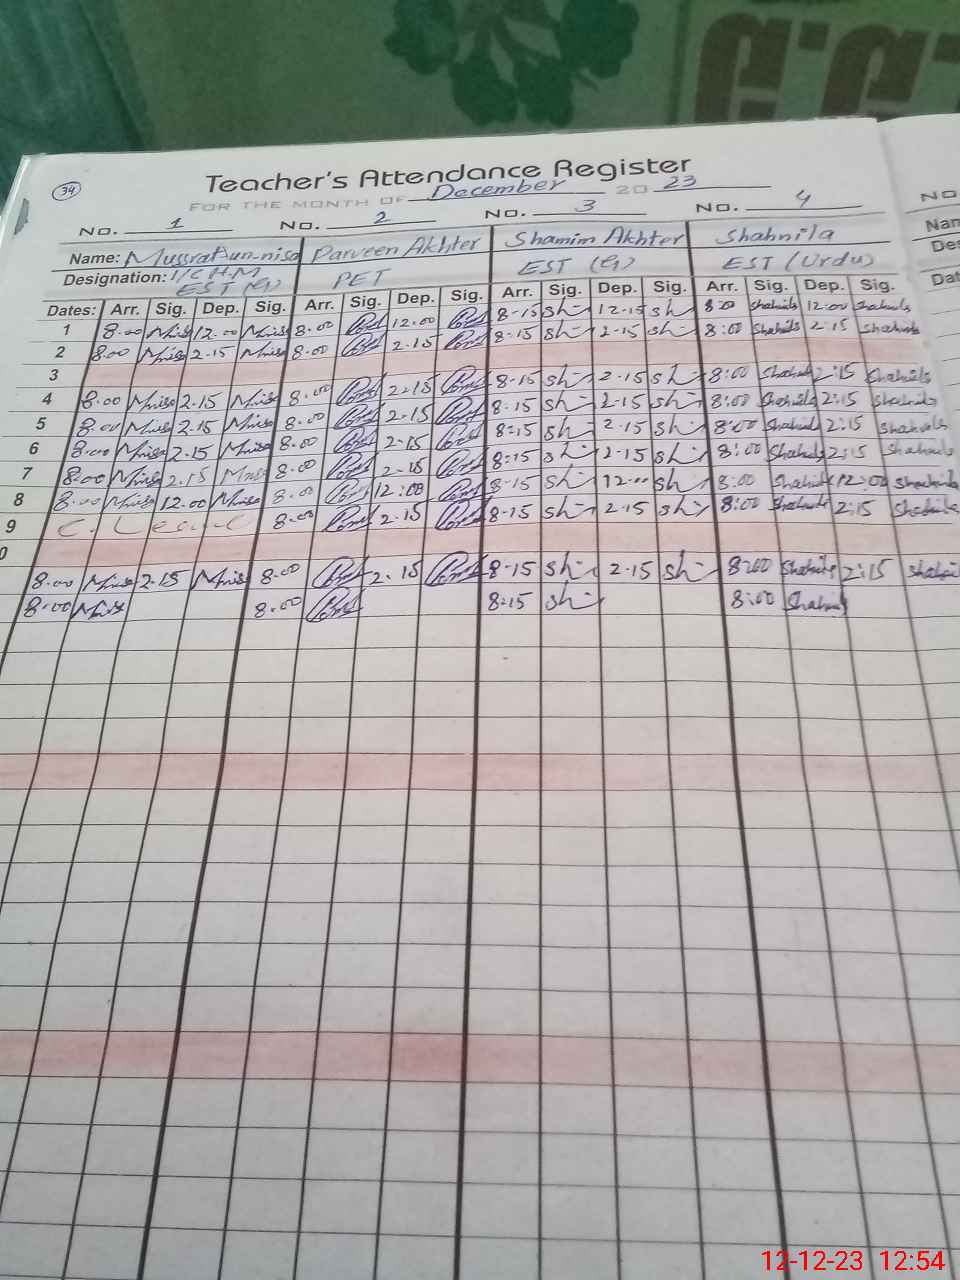 G.G.
34
Teacher's Attendance Register
FOR THE MONTH OF December 2023
No. 1 No. 2 No. 3 No. 4 No
Name: Mussrat-un-nisa Parveen Akhter Shamim Akhter Shahnila Nam
Designation: I/C H.M EST (G) PET EST (G) EST (Urdu) Des
Dates: Arr. Sig. Dep. Sig. Arr. Sig. Dep. Sig. Arr. Sig. Dep. Sig. Arr. Sig. Dep. Sig. Dat
1 8.00 12.00 8.00 12.00 8-15 sh 12.15 sh 8:00 Shahnila 12:00 Shahnila
2 8.00 2.15 8.00 2.15 8-15 sh 2-15 sh 8:00 Shahnila 2:15 Shahnila
3
4 8.00 2.15 8.00 2.15 8-15 sh 2.15 sh 8:00 Shahnila 2:15 Shahnila
5 8.00 2.15 8.00 2.15 8.15 sh 2.15 sh 8:00 Shahnila 2:15 Shahnila
6 8.00 2.15 8.00 2.15 8:15 sh 2.15 sh 8:00 Shahnila 2:15 Shahnila
7 8.00 2.15 8.00 2.15 8:15 sh 2.15 sh 8:00 Shahnila 2:15 Shahnila
8 8.00 12.00 8.00 12:00 8-15 sh 12.00 sh 8:00 Shahnila 12:00 Shahnila
9 C. Leave 8.00 2.15 8-15 sh 2.15 sh 8:00 Shahnila 2:15 Shahnila
0
8.00 2.15 8.00 2.15 8-15 sh 2.15 sh 8:00 Shahnila 2:15 Shahnila
8.00 8.00 8:15 sh 8:00 Shahnila
12-12-23 12:54